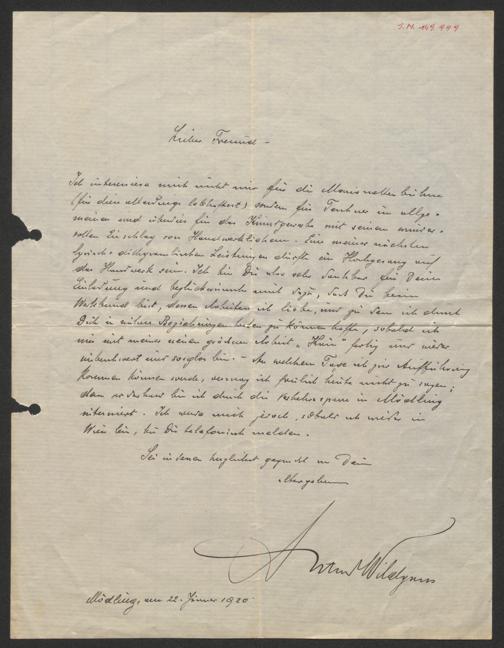 I.N. 149.999
Lieber Freund –
Ich interessiere mich nicht nur für die Marionettenbühne
(für diese allerdings lebhaftest) sondern für Teschner im allge-
meinen und überdies für das Kunstgewerbe mit seinem wunder-
vollen Einschlag von Handwerklichem. Eine meiner nächsten
lyrisch-dithyrambischen Leistungen dürfte ein Hochgesang auf
das Handwerk sein. Ich bin Dir also sehr dankbar für Deine
Einladung und beglückwünsche mich dazu, daß Du beim
bist, dessen Arbeiten ich liebe, und zu dem ich durch
Dich in nähere Beziehungen treten zu können hoffe, sobald ich
nur mit meiner neuen großen Arbeit „Kain“ fertig und wieder
und sorglos bin. – An welchem Tage ich zur Aufführung
kommen können werde, vermag ich freilich heute nicht zu sagen;
denn vorderhand bin ich durch die Verkehrssperre in Mödling
interniert. Ich werde mich jedoch, sobald ich wieder in
Wien bin, bei Dir telefonisch melden.
Sei indessen herzlichst gegrüßt von Deinem
ergebenen
Anton Wildgans
Mödling, am 22. Jänner 1920